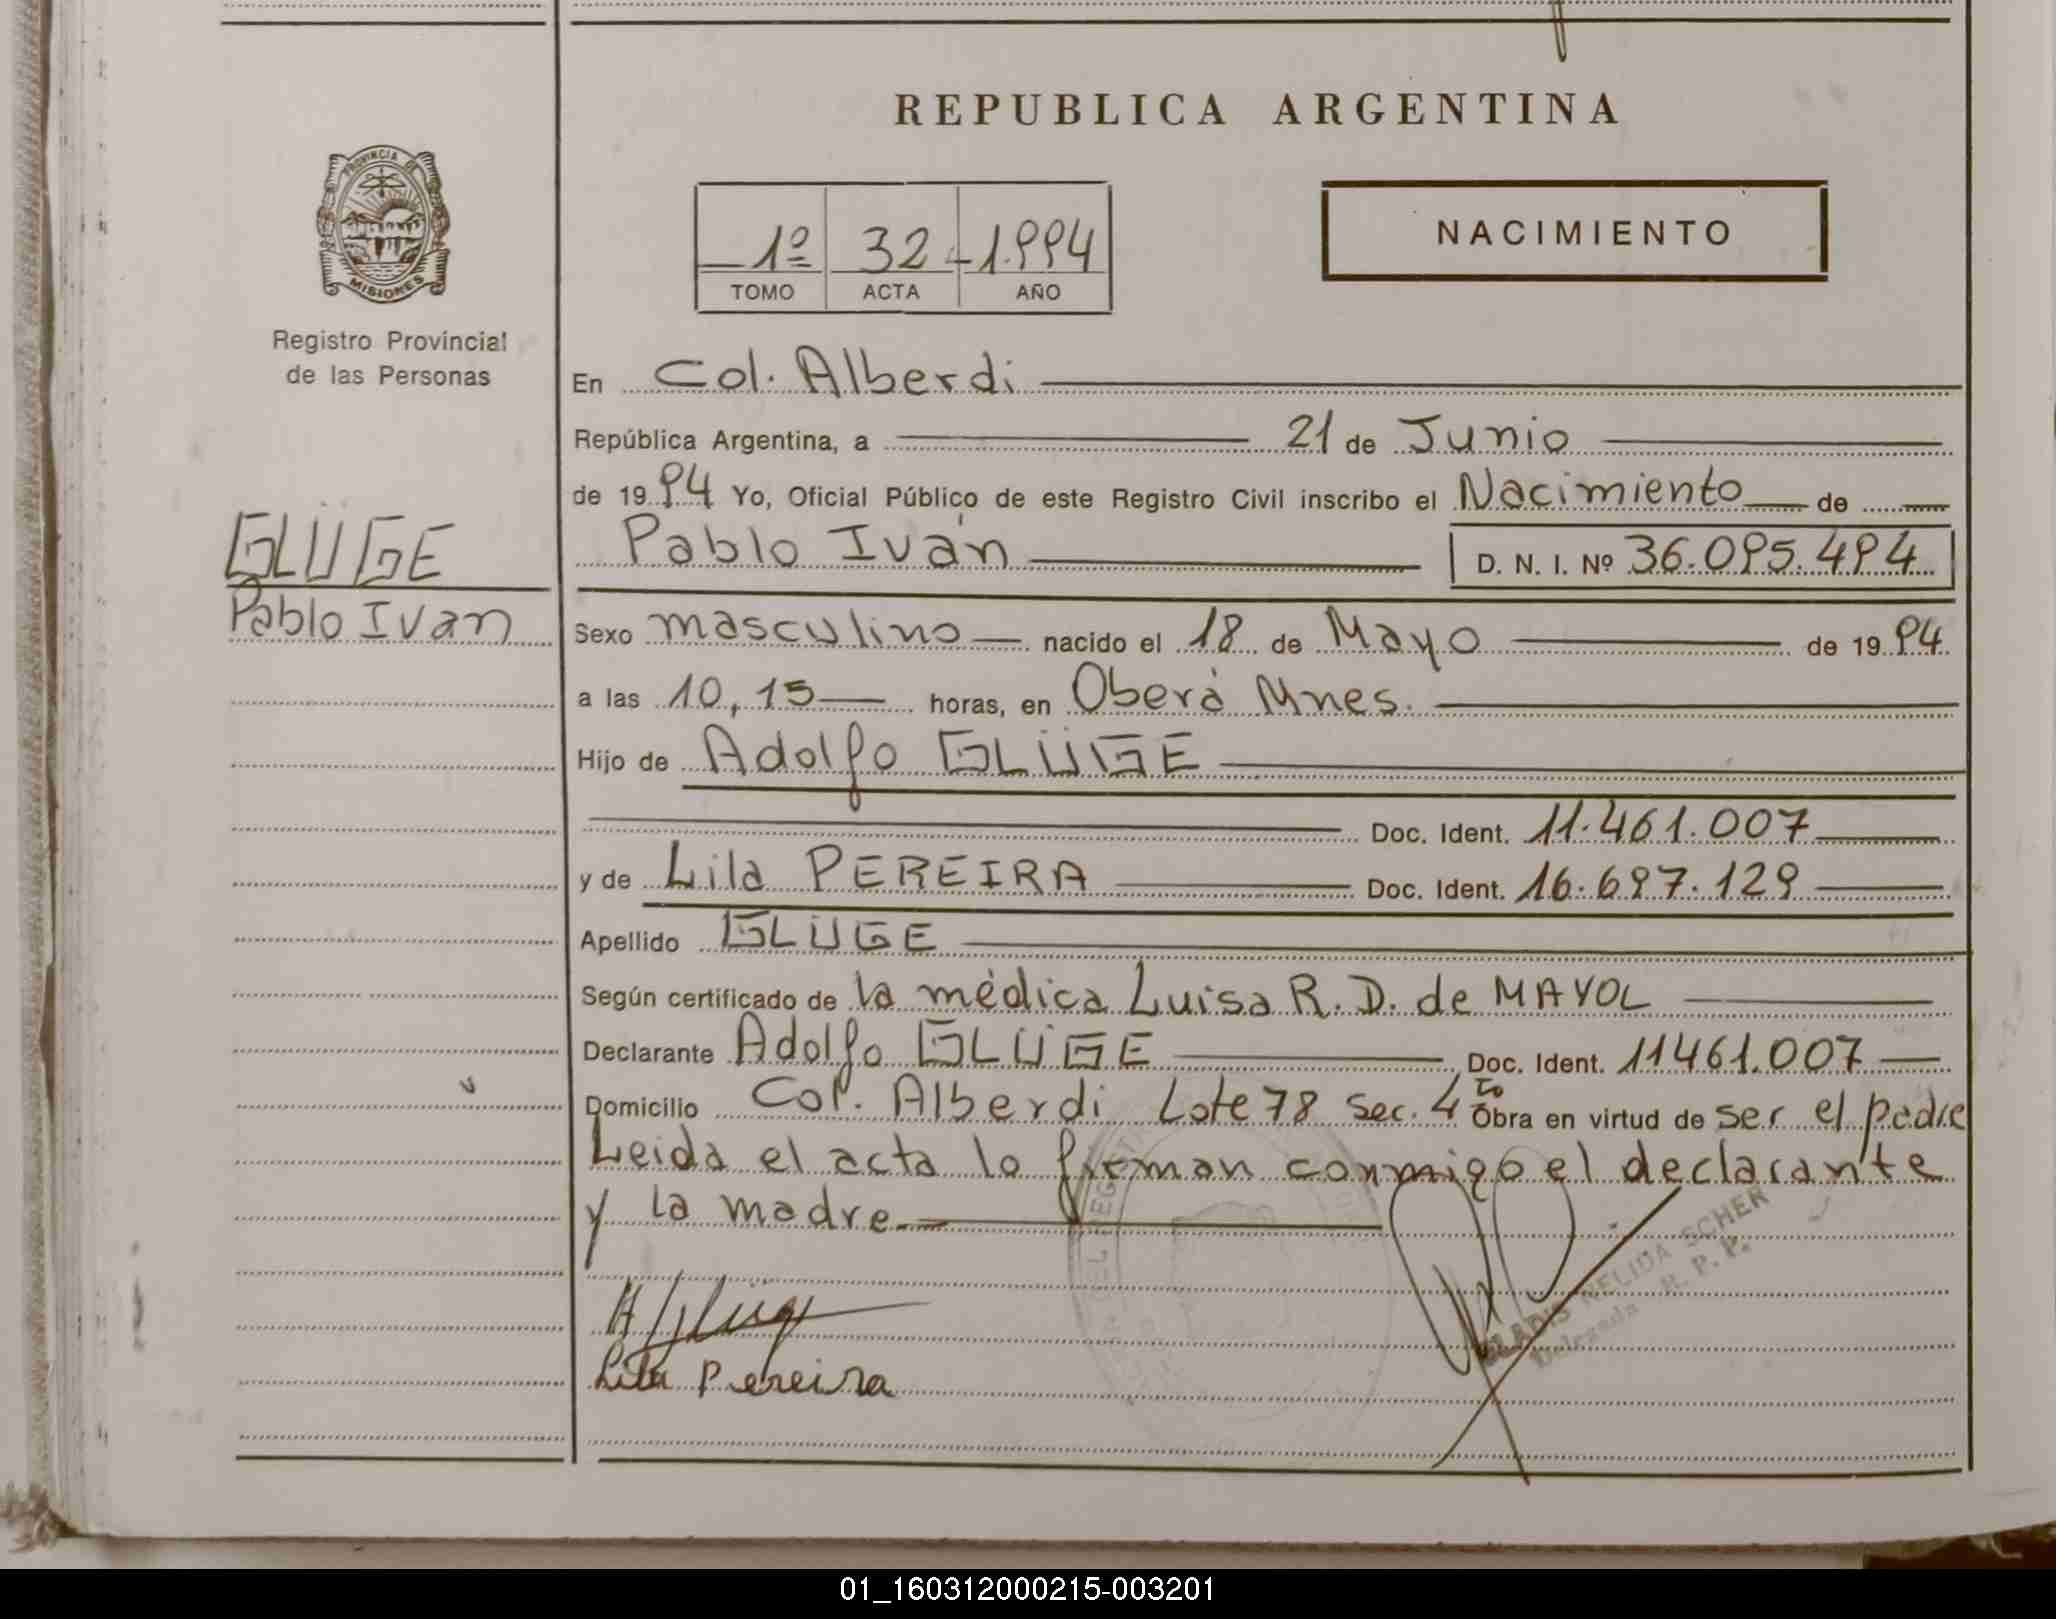 REPUBLICA ARGENTINA
PROVINCIA DE
MISIONES
Registro Provincial
de las Personas
1º 32 1.994
TOMO ACTA AÑO
NACIMIENTO
En Col. Alberdi
República Argentina, a 21 de Junio
de 1994 Yo, Oficial Público de este Registro Civil inscribo el Nacimiento de
Pablo Iván D. N. I. Nº 36.095.494
GLÜGE
Pablo Ivan
Sexo masculino nacido el 18 de Mayo de 1994
a las 10,15 horas, en Oberá Mnes.
Hijo de Adolfo GLÜGE
Doc. Ident. 11.461.007
y de Lila PEREIRA Doc. Ident. 16.697.129
Apellido GLÜGE
Según certificado de la médica Luisa R. D. de MAYOL
Declarante Adolfo GLÜGE Doc. Ident. 11461.007
Domicilio Col. Alberdi Lote 78 sec. 4to Obra en virtud de ser el padre
Leida el acta lo firman conmigo el declarante
y la madre.
GLADIS NELIDA SCHER
Delegada R. P. P.
A Glüge
Lila Pereira
01_160312000215-003201